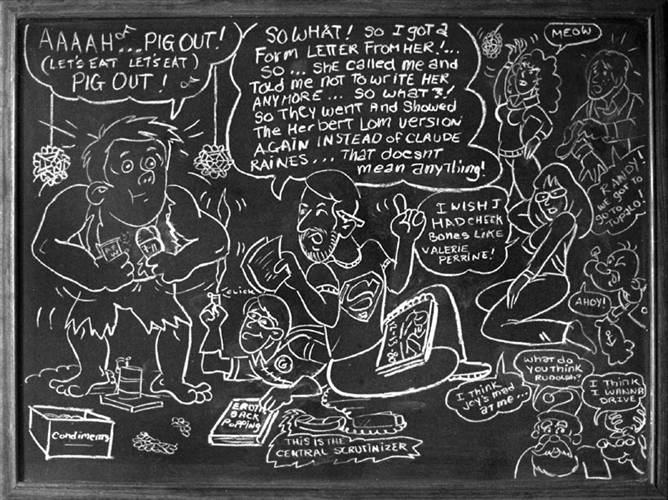 AAAAH... PIG OUT!
(LET'S EAT LET'S EAT)
PIG OUT!
SO WHAT! SO I GOT A
FORM LETTER FROM HER!...
SO... SHE CALLED ME AND
TOLD ME NOT TO WRITE HER
ANYMORE... SO WHAT?!
SO THEY WENT AND SHOWED
THE HERBERT LOM VERSION
AGAIN INSTEAD OF CLAUDE
RAINES... THAT DOESNT
MEAN ANYTHING!
MEOW
RANDY!
WE GOT TO
GO TO
I WISH I
HAD CHEEK
BONES LIKE
VALERIE
PERRINE!
CLICK
AHOY!
WHAT DO
YOU THINK
RUDOLPH?
I THINK
JOY'S MAD
AT ME...
I THINK
I WANNA
DRIVE
CONDIMENTS
EROTIC
BACK
POPPING
THIS IS THE
CENTRAL SCRUTINIZER